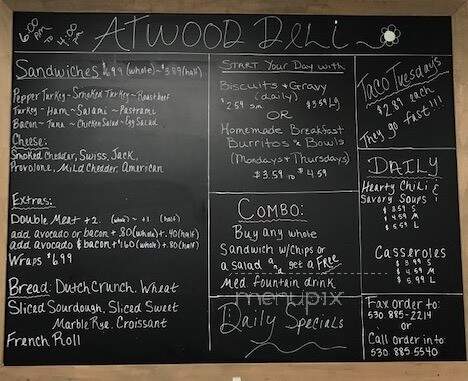 6:00 AM TO 4:00 PM
ATWOOD DELI
Sandwiches $6.99 (whole) ~ $3.89 (half)
Pepper Turkey ~ Smoked Turkey ~ Roast beef
Turkey ~ Ham ~ Salami ~ Pastrami
Bacon ~ Tuna ~ Chicken Salad ~ Egg Salad
Cheese:
Smoked Cheddar, Swiss, Jack,
Provolone, Mild Cheddar, American
Extras:
Double Meat +2. (whole) ~ +1. (half)
add avocado or bacon + .80 (whole) + .40 (half)
add avocado & bacon + $1.60 (whole) + .80 (half)
Wraps $6.99
Bread: Dutch Crunch, Wheat
Sliced Sourdough, Sliced Sweet
Marble Rye, Croissant
French Roll
START Your Day with
Biscuits & Gravy
(daily)
$2.59 sm $3.59 Lg
OR
Homemade Breakfast
Burritos & Bowls
(Mondays & Thursdays)
$3.59 to $4.59
COMBO:
Buy any whole
Sandwich w/Chips or
a salad and get a Free
Med fountain drink
menupix
Daily Specials
Taco Tuesdays
$2.89 each
They go fast!!!
DAILY
Hearty Chili &
Savory Soups
$3.59 S
$4.59 M
$5.59 L
Casseroles
$3.99 S
$4.99 M
$5.99 L
Fax order to:
530.885-2214
or
Call order in to:
530 885 5540